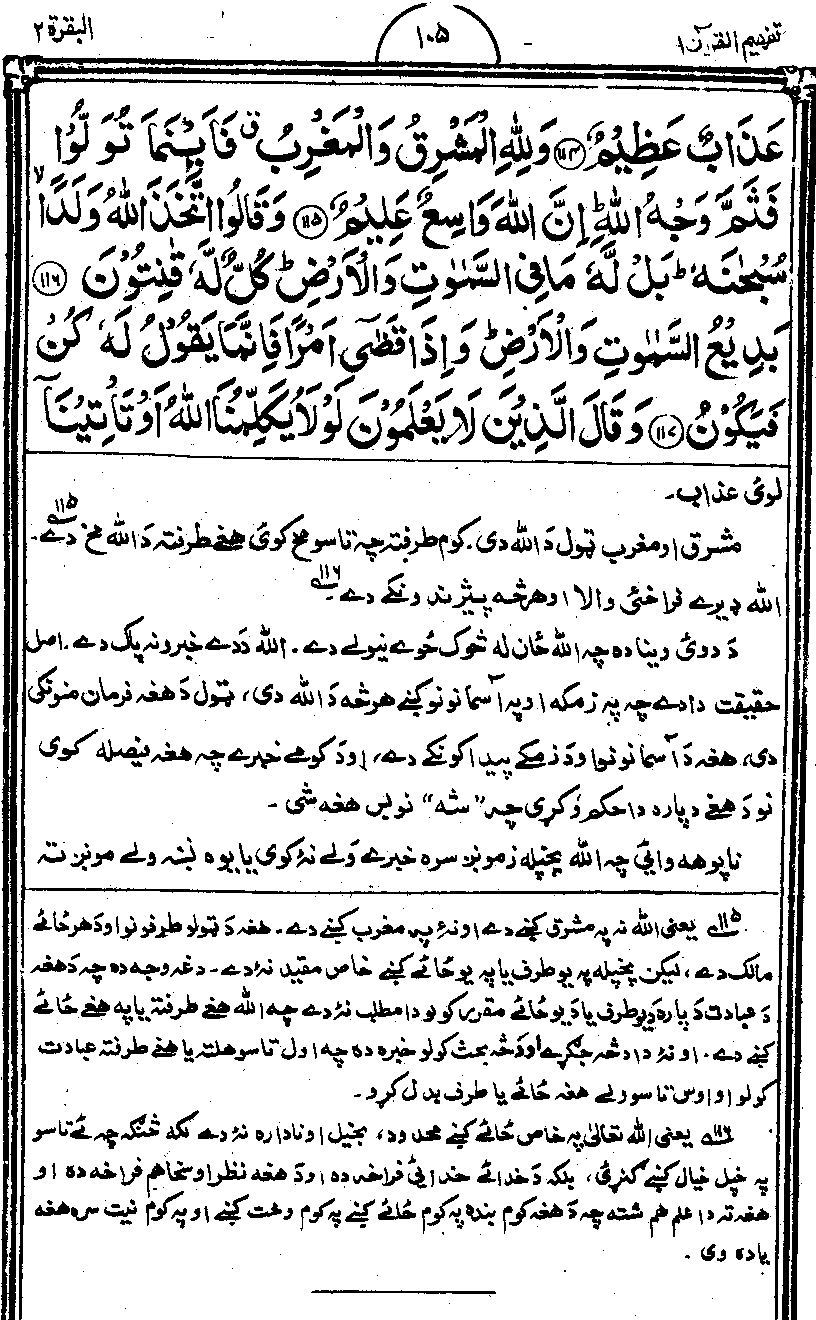 تفهيم القرآن ١
١٠۵
البقرة ٢
عَذَابٌ عَظِيْمٌ ﴿۱۱۴﴾ وَلِلّٰهِ الْمَشْرِقُ وَالْمَغْرِبُ ۚ فَاَيْنَمَا تُوَلُّوْا
فَثَمَّ وَجْهُ اللّٰهِ ؕ اِنَّ اللّٰهَ وَاسِعٌ عَلِيْمٌ ﴿۱۱۵﴾ وَقَالُوا اتَّخَذَ اللّٰهُ وَلَدًا ۙ
سُبْحٰنَهٗ ؕ بَلْ لَّهٗ مَا فِي السَّمٰوٰتِ وَالْاَرْضِ ؕ كُلٌّ لَّهٗ قٰنِتُوْنَ ﴿۱۱۶﴾
بَدِيْعُ السَّمٰوٰتِ وَالْاَرْضِ ؕ وَاِذَا قَضٰٓى اَمْرًا فَاِنَّمَا يَقُوْلُ لَهٗ كُنْ
فَيَكُوْنُ ﴿۱۱۷﴾ وَقَالَ الَّذِيْنَ لَا يَعْلَمُوْنَ لَوْلَا يُكَلِّمُنَا اللّٰهُ اَوْ تَاْتِيْنَآ
لوئ عذاب۔
مشرق او مغرب ټول دَ الله دی. کوم طرفته چه تاسو مخ کوئ هغے طرفته دَ الله مخ دے۔ ۱۱۵
الله ډیرے فراخئ والا او هر څه پیژندونکے دے۔ ۱۱۶
دَ دوئ وینا ده چه الله ځان له څوک ځوے نیولے دے۔ الله دَ دے خبرو نه پاک دے. اصل
حقیقت دا دے چه په زمکه او په آسمانونو کښے هر څه دَ الله دی، ټول دَ هغه فرمان منونکی
دی، هغه دَ آسمانونو او دَ زمکے پیدا کونکے دے، او دَ کومے خبرے چه هغه فیصله کوی
نو دَ هغے دپاره دا حکم وکړی چه "شه" نو بس هغه شی۔
ناپوهه وائی چه الله پخپله زمونږ سره خبرے ولے نۀ کوی یا یوه نښه ولے مونږ ته
۱۱۵ یعنی الله نه په مشرق کښے دے او نۀ په مغرب کښے دے۔ هغه دَ ټولو طرفونو او دَ هر ځائے
مالک دے، لیکن پخپله په یو طرف یا په یو ځائے کښے خاص مقید نۀ دے۔ دغه وجه ده چه دَ هغه
دَ عبادت دَ پاره دَ یو طرف یا دَ یو ځائے مقرر کولو دا مطلب نۀ دے چه الله هغے طرفته یا په هغے ځائے
کښے دے. او نۀ دا دڅه جګړے او دَ څه بحث کولو خبره ده چه اول تاسو هلته یا هغے طرفته عبادت
کولو او اوس تاسو ولے هغه ځائے یا طرف بدل کړو۔
۱۱۶ یعنی الله تعالیٰ په خاص ځائے کښے محدود، بخیل او ناداره نۀ دے لکه څنګه چه ئے تاسو
په خپل خیال کښے ګنړئ، بلکه دَ خدائے خدائی فراخه ده او دَ هغه نظر او سخا هم فراخه ده او
هغه ته دا علم هم شته چه دَ هغه کوم بنده په کوم ځائے کښے په کوم وخت کښے او په کوم نیت سره هغه
یاده وی۔